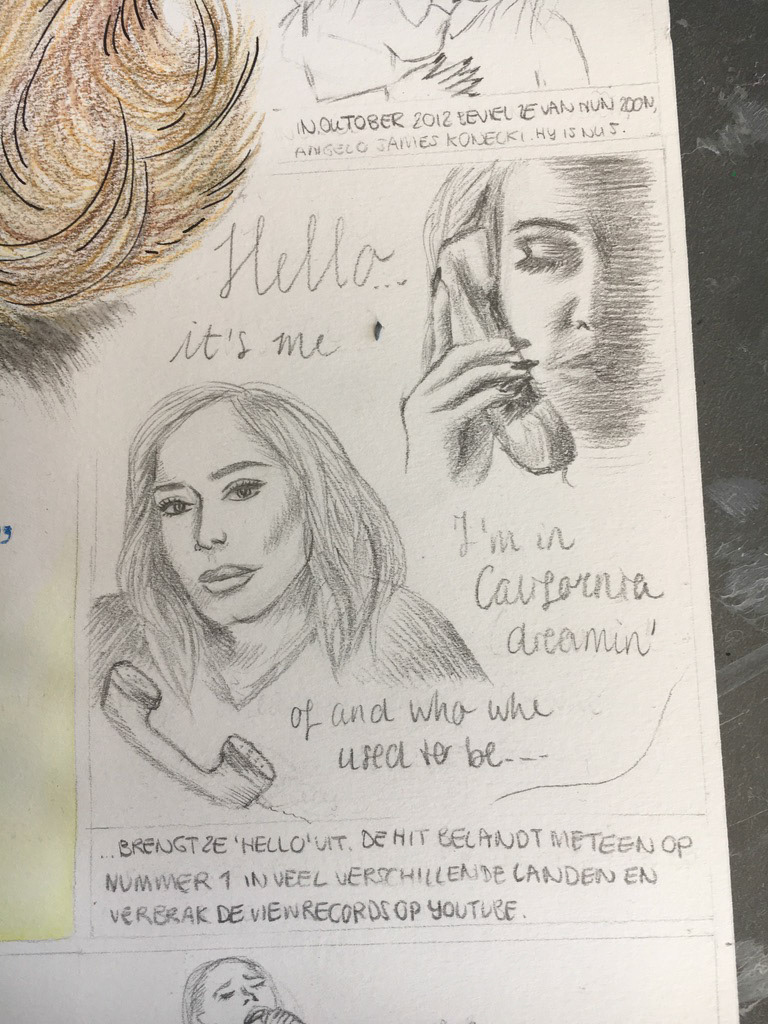 IN OKTOBER 2012 BEVIEL ZE VAN HUN ZOON,
ANGELO JAMES KONECKI. HY IS NU 5.
Hello...
it's me
I'm in
California
dreamin'
of and who whe
used to be----
...BRENGT ZE 'HELLO' UIT. DE HIT BELANDT METEEN OP
NUMMER 1 IN VEEL VERSCHILLENDE LANDEN EN
VERBRAK DE VIEWRECORDS OP YOUTUBE.